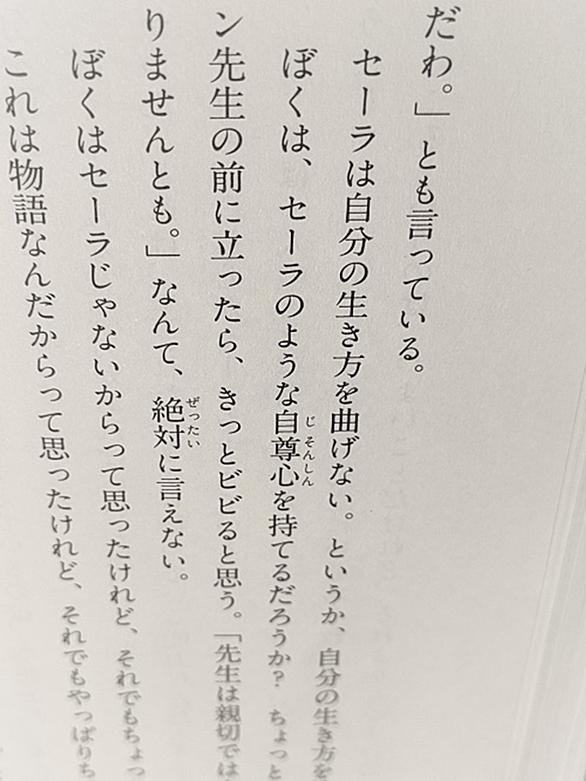 だわ。」とも言っている。
セーラは自分の生き方を曲げない。というか、自分の生き方を
ぼくは、セーラのような自尊心を持てるだろうか？ ちょっと
ン先生の前に立ったら、きっとビビると思う。「先生は親切では
りませんとも。」なんて、絶対に言えない。
ぼくはセーラじゃないからって思ったけれど、それでもちょっ
これは物語なんだからって思ったけれど、それでもやっぱりち